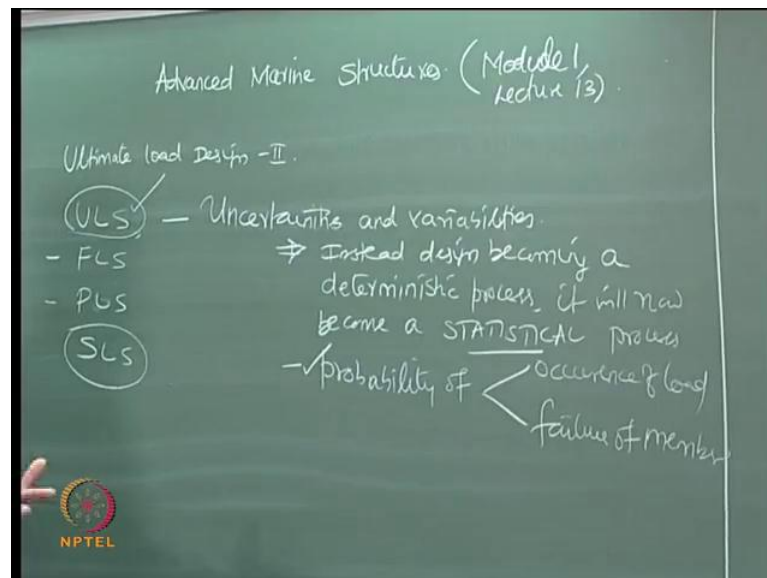 Advanced Marine Structures. (Module 1,
Lecture 13).
Ultimate load Design - II.
ULS — Uncertainties and variabilities.
- FLS
⇒ Instead design becoming a
deterministic process, it will now
- PLS
become a STATISTICAL process
SLS
- ✓ probability of
occurence of load
failure of member
NPTEL